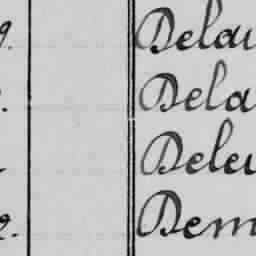 9. Delau
. Dela
Deleu
2. Dem